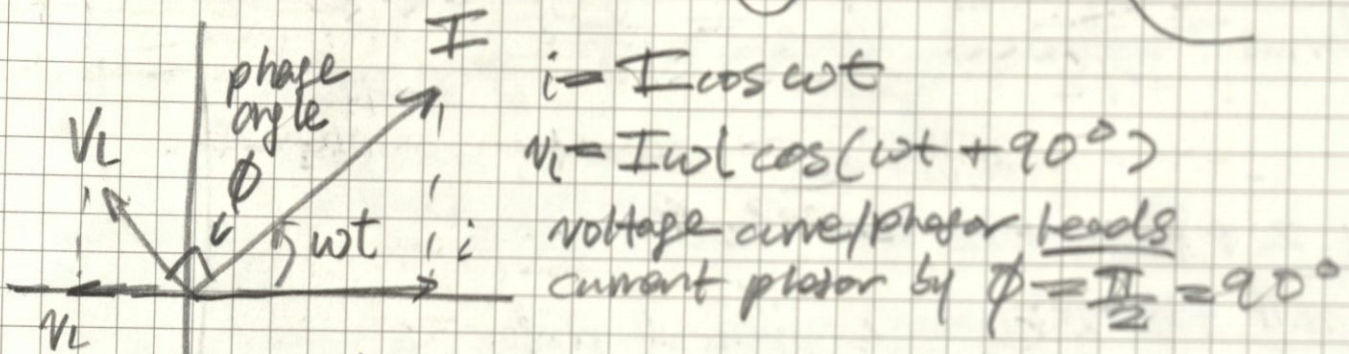 I
phase
angle
ϕ
V_L
ωt
i
v_L
i = I cos ωt
v_L = IωL cos(ωt + 90°)
voltage curve/phasor leads
current phasor by ϕ = π/2 = 90°